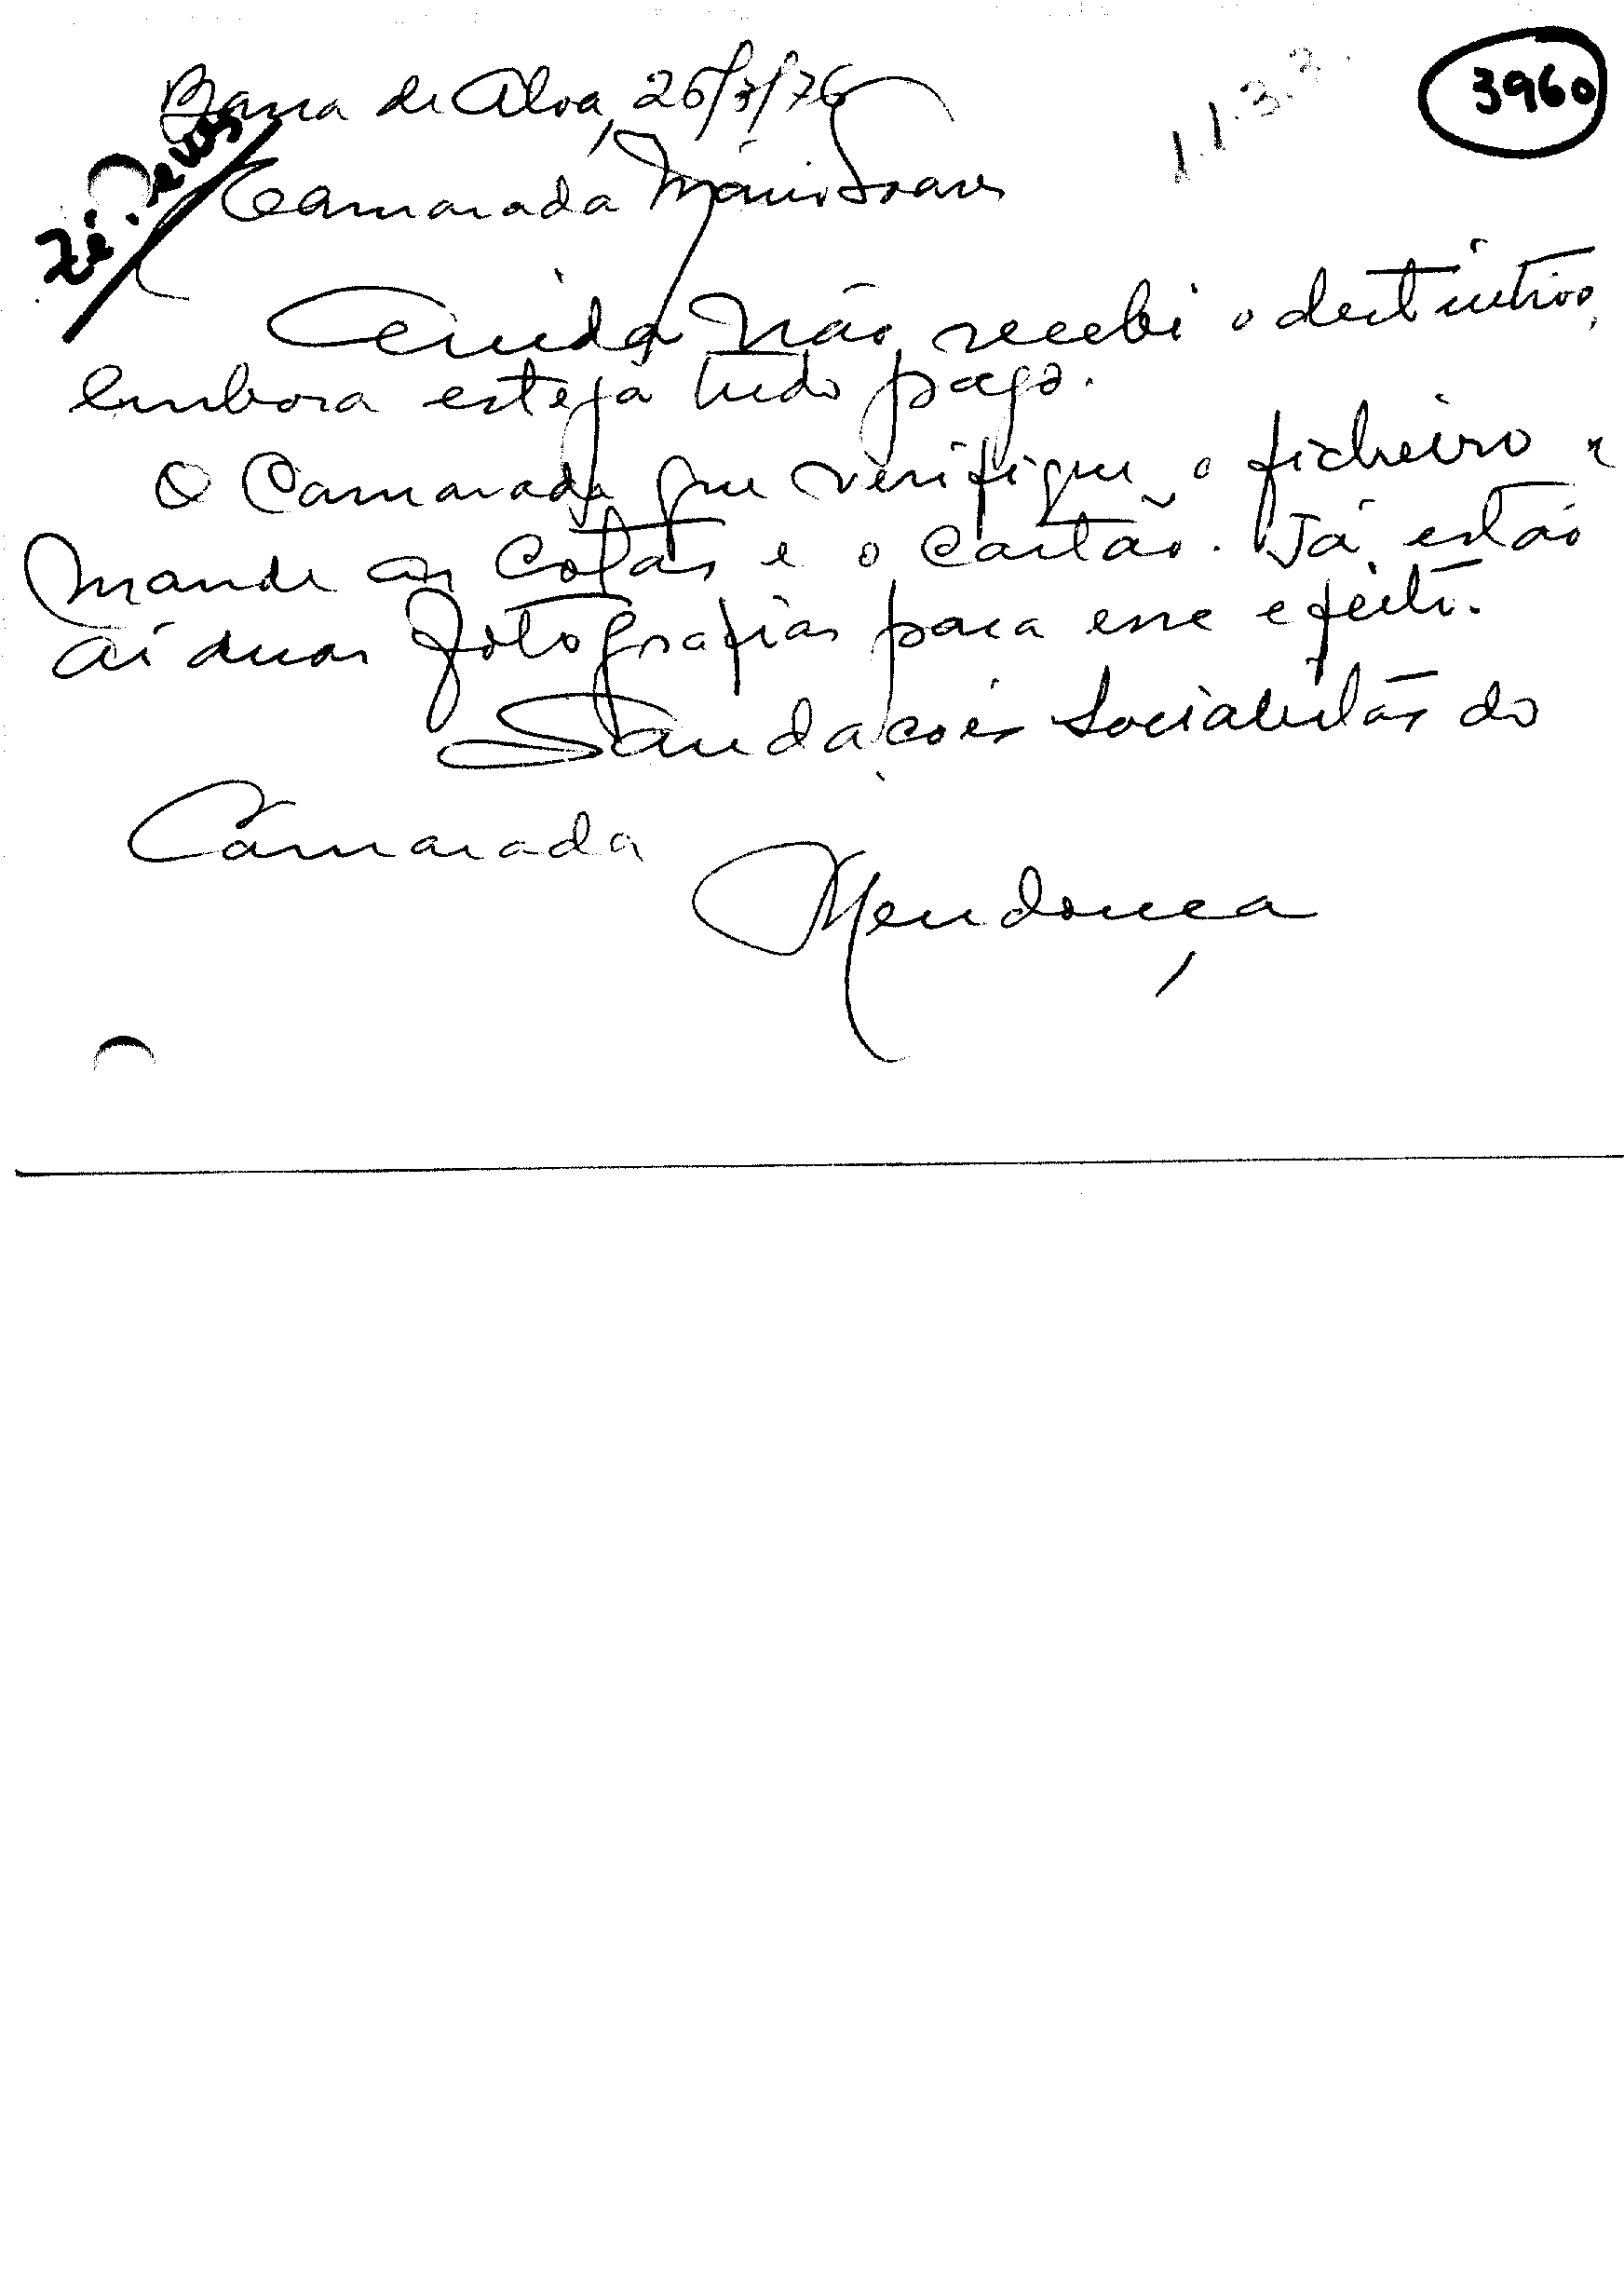 3960
1.1.3.2.
Barra de Alva, 26/3/76
Zé.
Camarada Mário Soares
Ainda não recebi o destintivo,
embora esteja tudo pago.
O Camarada que verifique o ficheiro e
mande as cotas e o cartão. Já estão
aí duas fotografias para esse efeito.
Saudações Socialistas do
Camarada
Mendonça